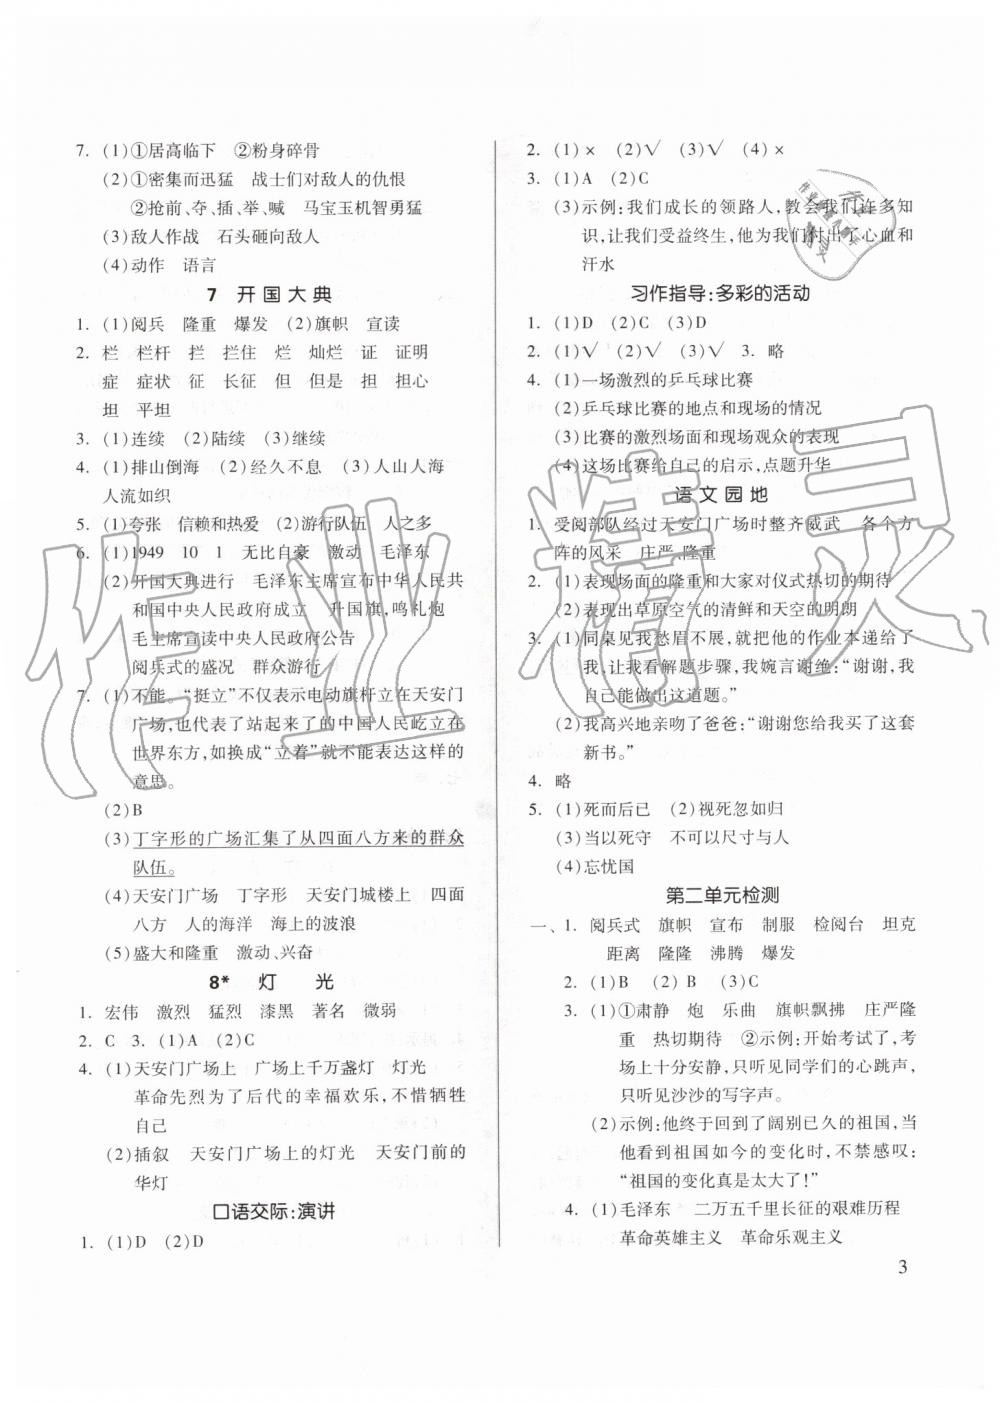 7. (1)①居高临下　②粉身碎骨
(2)①密集而迅猛　战士们对敌人的仇恨
②抢前、夺、插、举、喊　马宝玉机智勇猛
(3)敌人作战　石头砸向敌人
(4)动作　语言
7　开国大典
1. (1)阅兵　隆重　爆发　(2)旗帜　宣读
2. 栏　栏杆　拦　拦住　烂　灿烂　证　证明
症　症状　征　长征　但　但是　担　担心
坦　平坦
3. (1)连续　(2)陆续　(3)继续
4. (1)排山倒海　(2)经久不息　(3)人山人海
人流如织
5. (1)夸张　信赖和热爱　(2)游行队伍　人之多
6. (1)1949　10　1　无比自豪　激动　毛泽东
(2)开国大典进行　毛泽东主席宣布中华人民共
和国中央人民政府成立　升国旗,鸣礼炮
毛主席宣读中央人民政府公告
阅兵式的盛况　群众游行
7. (1)不能。“挺立”不仅表示电动旗杆立在天安门
广场,也代表了站起来了的中国人民屹立在
世界东方,如换成“立着”就不能表达这样的
意思。
(2)B
(3)丁字形的广场汇集了从四面八方来的群众
队伍。
(4)天安门广场　丁字形　天安门城楼上　四面
八方　人的海洋　海上的波浪
(5)盛大和隆重　激动、兴奋
8*　灯　光
1. 宏伟　激烈　猛烈　漆黑　著名　微弱
2. C　3. (1)A　(2)C
4. (1)天安门广场上　广场上千万盏灯　灯光
革命先烈为了后代的幸福欢乐,不惜牺牲
自己
(2)插叙　天安门广场上的灯光　天安门前的
华灯
口语交际:演讲
1. (1)D　(2)D
2. (1)×　(2)√　(3)√　(4)×
3. (1)A　(2)C
(3)示例:我们成长的领路人,教会我们许多知
识,让我们受益终生,他为我们付出了心血和
汗水
习作指导:多彩的活动
1. (1)D　(2)C　(3)D
2. (1)√　(2)√　(3)√　3. 略
4. (1)一场激烈的乒乓球比赛
(2)乒乓球比赛的地点和现场的情况
(3)比赛的激烈场面和现场观众的表现
(4)这场比赛给自己的启示,点题升华
语文园地
1. 受阅部队经过天安门广场时整齐威武　各个方
阵的风采　庄严、隆重
2. (1)表现场面的隆重和大家对仪式热切的期待
(2)表现出草原空气的清鲜和天空的明朗
3. (1)同桌见我愁眉不展,就把他的作业本递给了
我,让我看解题步骤,我婉言谢绝:“谢谢,我
自己能做出这道题。”
(2)我高兴地亲吻了爸爸:“谢谢您给我买了这套
新书。”
4. 略
5. (1)死而后已　(2)视死忽如归
(3)当以死守　不可以尺寸与人
(4)忘忧国
第二单元检测
一、1. 阅兵式　旗帜　宣布　制服　检阅台　坦克
距离　隆隆　沸腾　爆发
2. (1)B　(2)B　(3)C
3. (1)①肃静　炮　乐曲　旗帜飘拂　庄严隆
重　热切期待　②示例:开始考试了,考
场上十分安静,只听见同学们的心跳声,
只听见沙沙的写字声。
(2)示例:他终于回到了阔别已久的祖国,当
他看到祖国如今的变化时,不禁感叹:
“祖国的变化真是太大了!”
4. (1)毛泽东　二万五千里长征的艰难历程
革命英雄主义　革命乐观主义
3
作业精灵